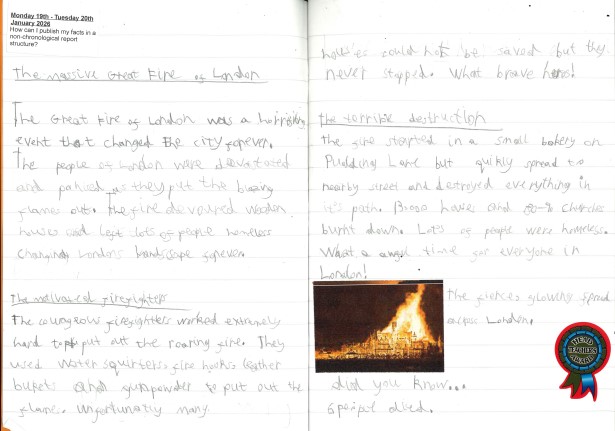 Monday 19th - Tuesday 20th
January 2026
How can I publish my facts in a
non-chronological report
structure?
The massive Great Fire of London
The Great Fire of London was a horrifying
event that changed the city forever.
The people of London were devastated
and panicked as they put the blazing
flames out. The fire devoured wooden
houses and left lots of people homeless
changing Londons landscape forever.
The firefighters
The courageous firefighters worked extremely
hard to put out the roaring fire. They
used water squirters, fire hooks, leather
buckets and gunpowder to put out the
flames. Unfortunatly many
houses could not be saved but they
never stopped. What brave heros!
The terrible destruction
The fire started in a small bakery on
Pudding Lane but quikly spread to
nearby street and destroyed everything in
it's path. and churches
burnt down. Lots of people were homeless.
What a time for everyone in
London!
The glowing spread
across London.
did you know...
6 died.
HEAD
TEACHER'S
AWARD